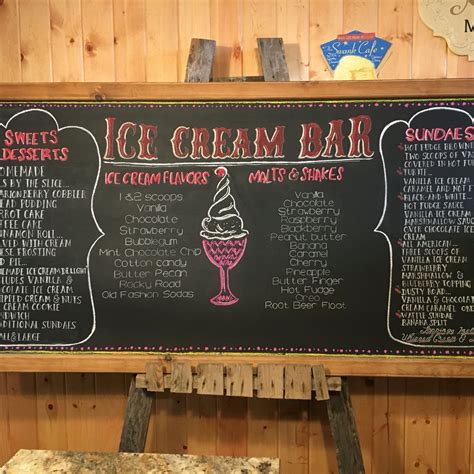 Swank Cafe
M
ICE CREAM BAR
SWEETS
DESSERTS
HOMEMADE
BY THE SLICE...
MARIONBERRY COBBLER
BREAD PUDDING
CARROT CAKE
FREE CAKE
SERVED WITH CREAM
CHEESE FROSTING
HOMEMADE ICE CREAM DELIGHT
INCLUDES VANILLA &
CHOCOLATE ICE CREAM
WHIPPED CREAM & NUTS
ICE CREAM COOKIE
SANDWICH
TRADITIONAL SUNDAES
SMALL & LARGE
ICE CREAM FLAVORS
1 & 2 scoops
Vanilla
Chocolate
Strawberry
Bubblegum
Mint Chocolate Chip
Cotton candy
Butter Pecan
Rocky Road
Old Fashion Sodas
MALTS & SHAKES
Vanilla
Chocolate
Strawberry
Raspberry
Blackberry
Peanut butter
Banana
Caramel
Cherry
Pineapple
Butter Finger
Hot Fudge
Oreo
Root Beer Float
SUNDAES
HOT FUDGE BROWNIE
TWO SCOOPS OF
COVERED IN HOT FUDGE
TURTLE...
VANILLA ICE CREAM
CARAMEL AND HOT
BLACK-AND-WHITE...
HOT FUDGE SAUCE
VANILLA ICE
MARSHMALLOW SAUCE
OVER CHOCOLATE ICE
CREAM
ALL AMERICAN...
THREE SCOOPS OF
VANILLA ICE CREAM
STRAWBERRY
MARSHMALLOW &
BLUEBERRY TOPPING
DUSTY ROAD...
VANILLA & CHOCOLATE
ICE CREAM CARAMEL
SUNDAE
BANANA SPLIT
Whipped Cream &